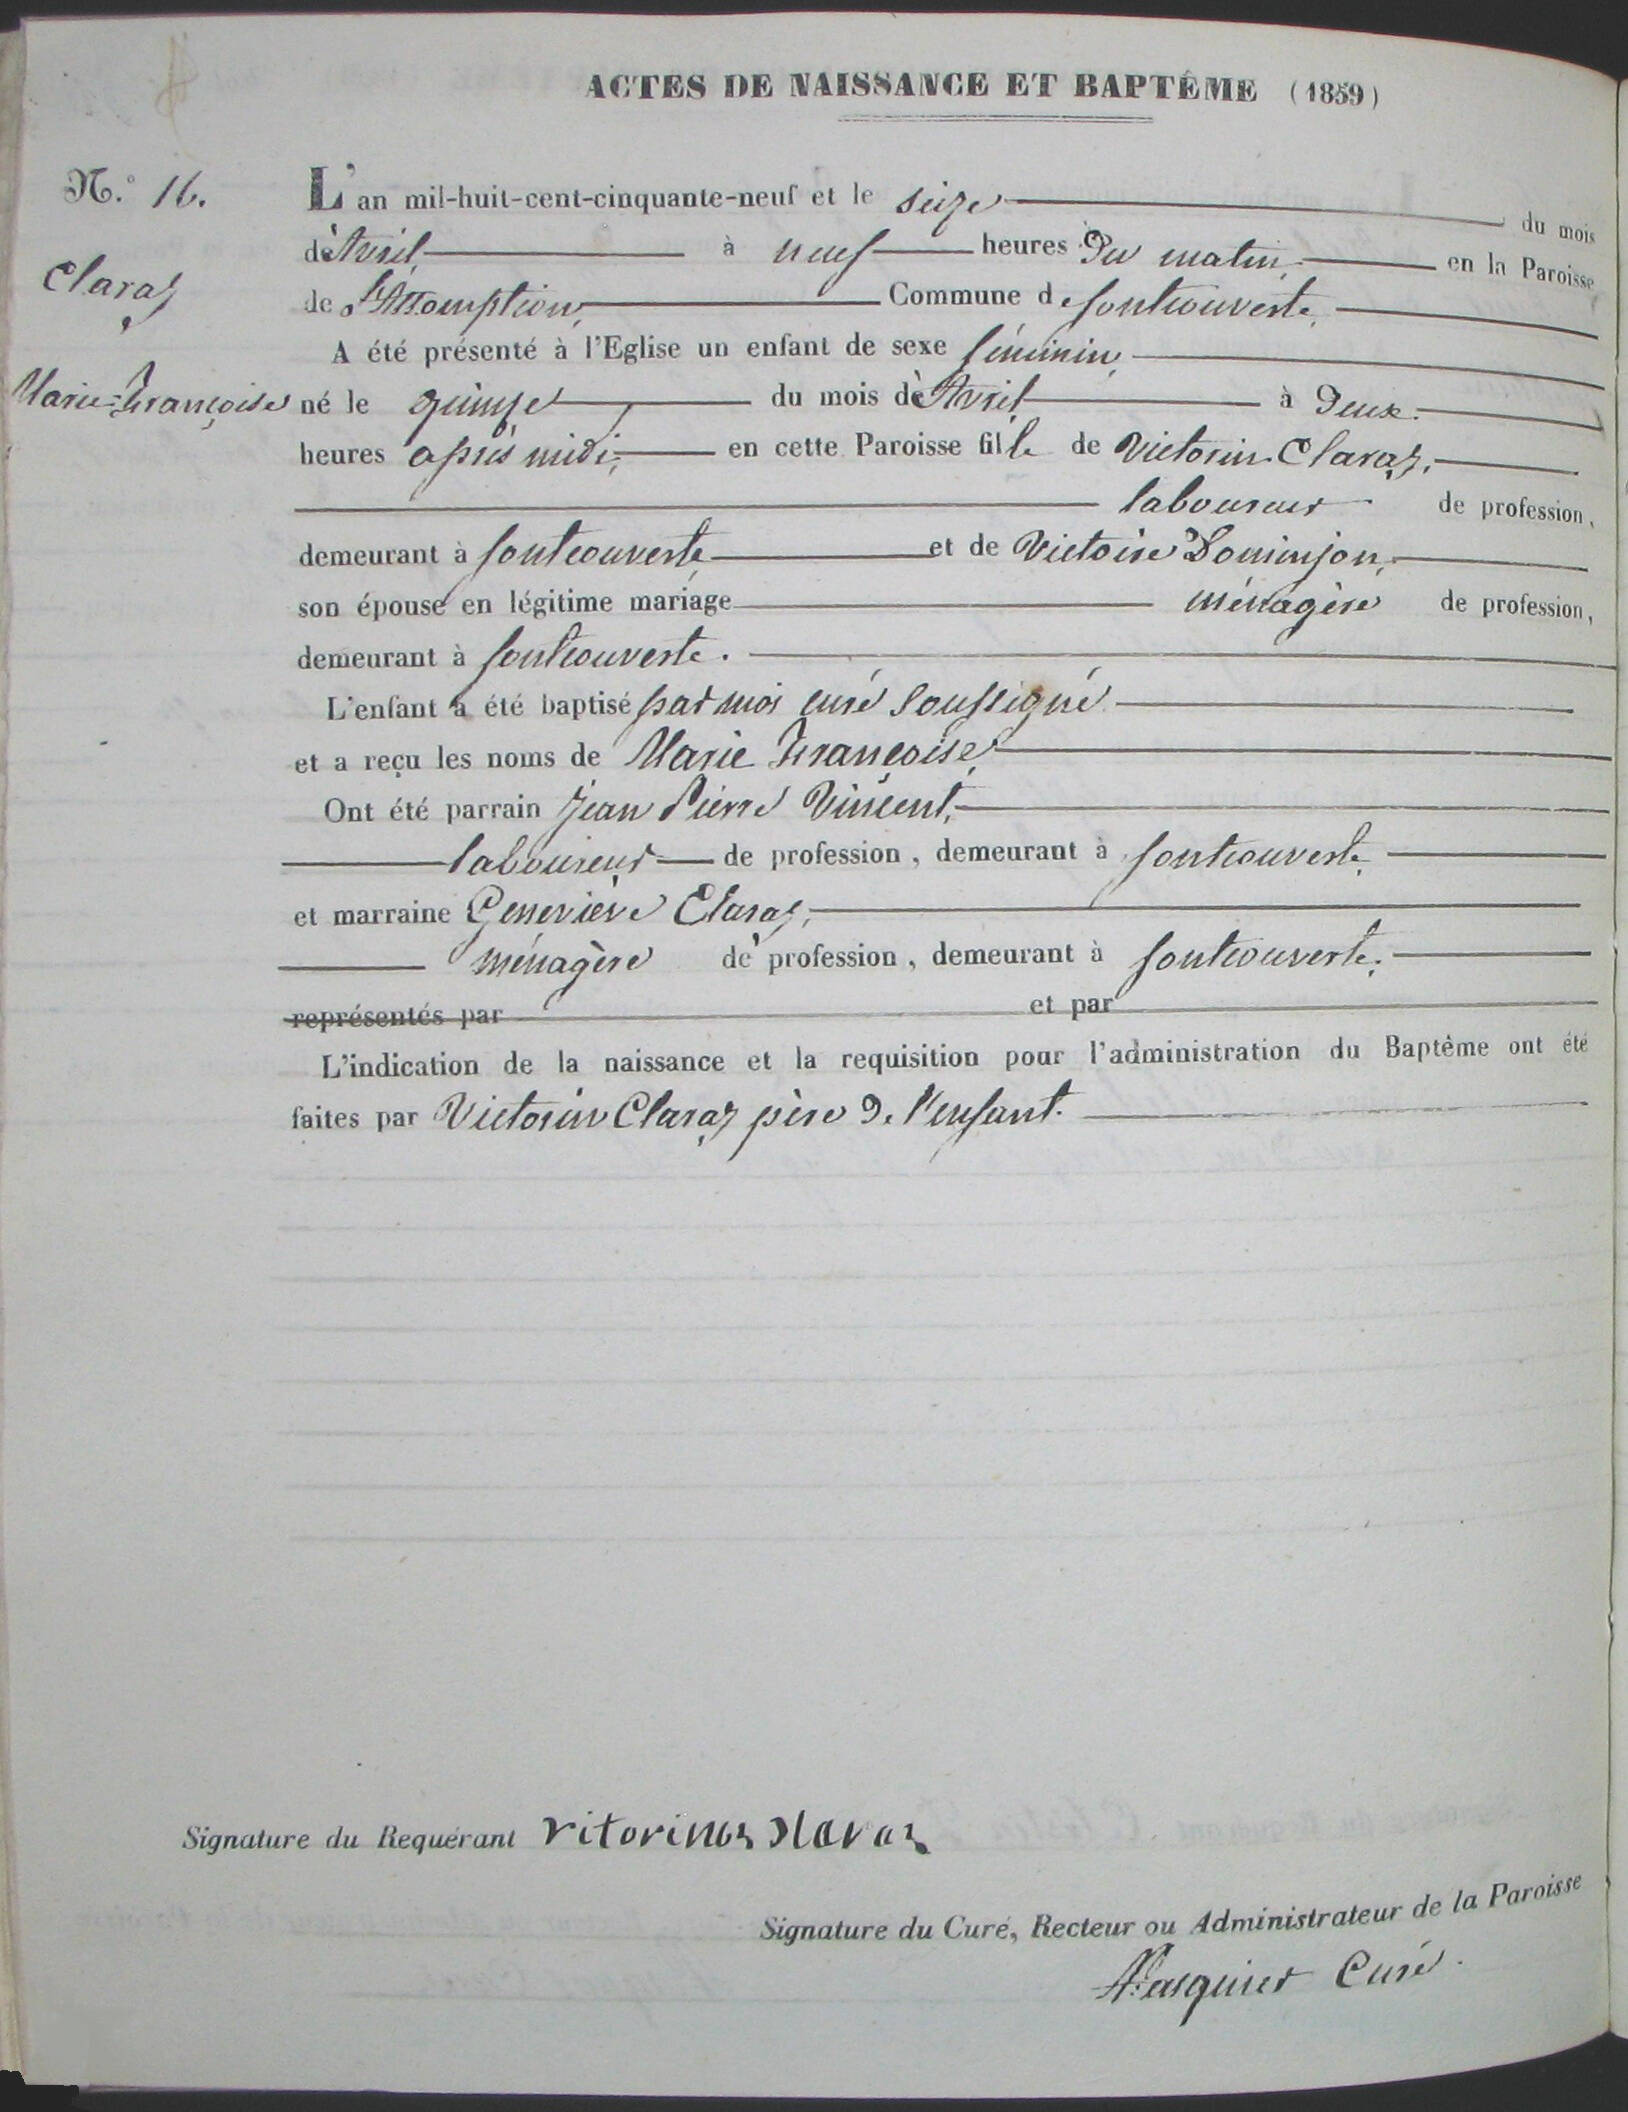 ACTES DE NAISSANCE ET BAPTÊME (1859)
N.° 16.
Claraz
Marie-Françoise
L'an mil-huit-cent-cinquante-neuf et le seize du mois
de Avril à neuf heures Du matin, en la Paroisse
de l'Assomption, Commune de fontcouverte,
A été présenté à l'Eglise un enfant de sexe féminin,
né le quinze du mois de Avril à Deux
heures après midi, en cette Paroisse fille de Victorin Claraz,
laboureur de profession,
demeurant à fontcouverte, et de Victoire Dominjon,
son épouse en légitime mariage ménagère de profession,
demeurant à fontcouverte.
L'enfant a été baptisé par moi curé soussigné
et a reçu les noms de Marie Françoise,
Ont été parrain Jean Pierre Vincent,
laboureur de profession, demeurant à fontcouverte,
et marraine Geneviève Claraz,
ménagère de profession, demeurant à fontcouverte.
représentés par et par
L'indication de la naissance et la requisition pour l'administration du Baptême ont été
faites par Victorin Claraz père De l'enfant.
Signature du Requérant
Signature du Curé, Recteur ou Administrateur de la Paroisse
Curé.